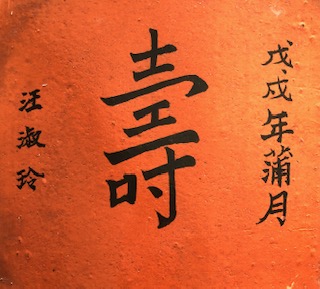 戊戌年蒲月
壽
汪淑玲